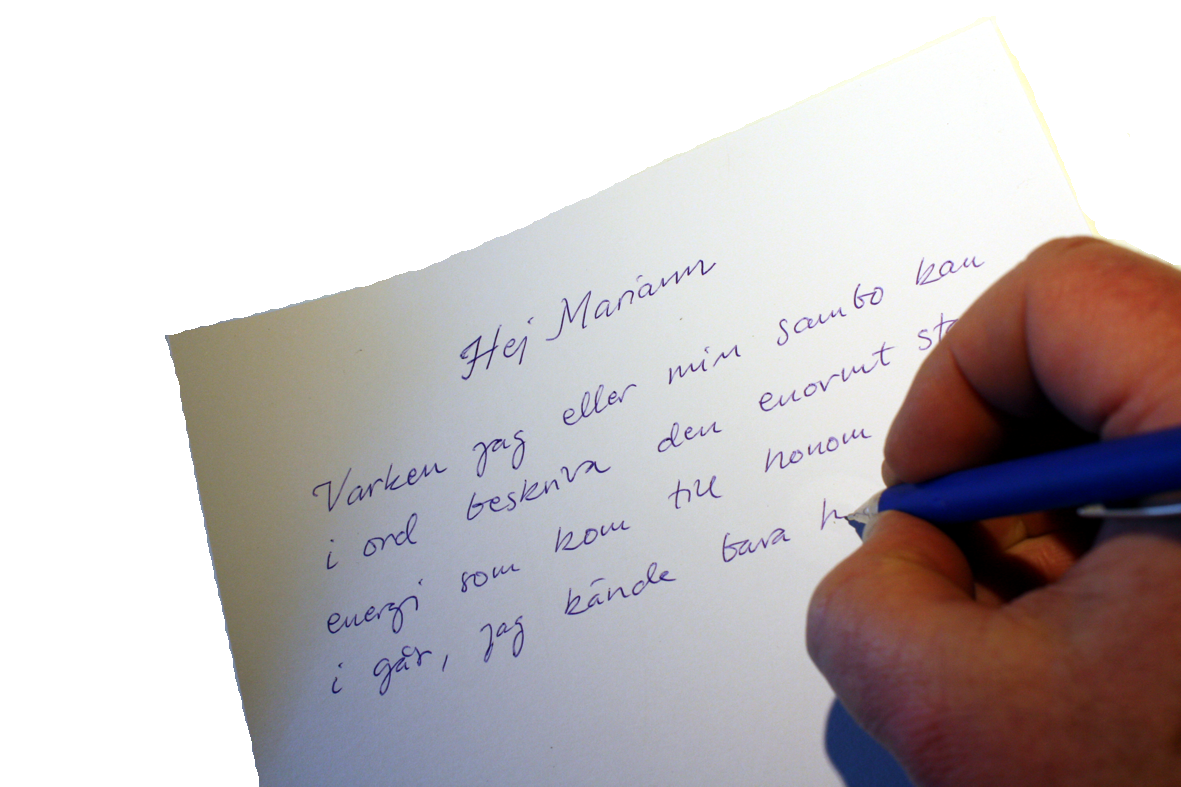 Hej Mariann
Varken jag eller min sambo kan
i ord beskriva den enormt
energi som kom till honom
i går, jag kände bara